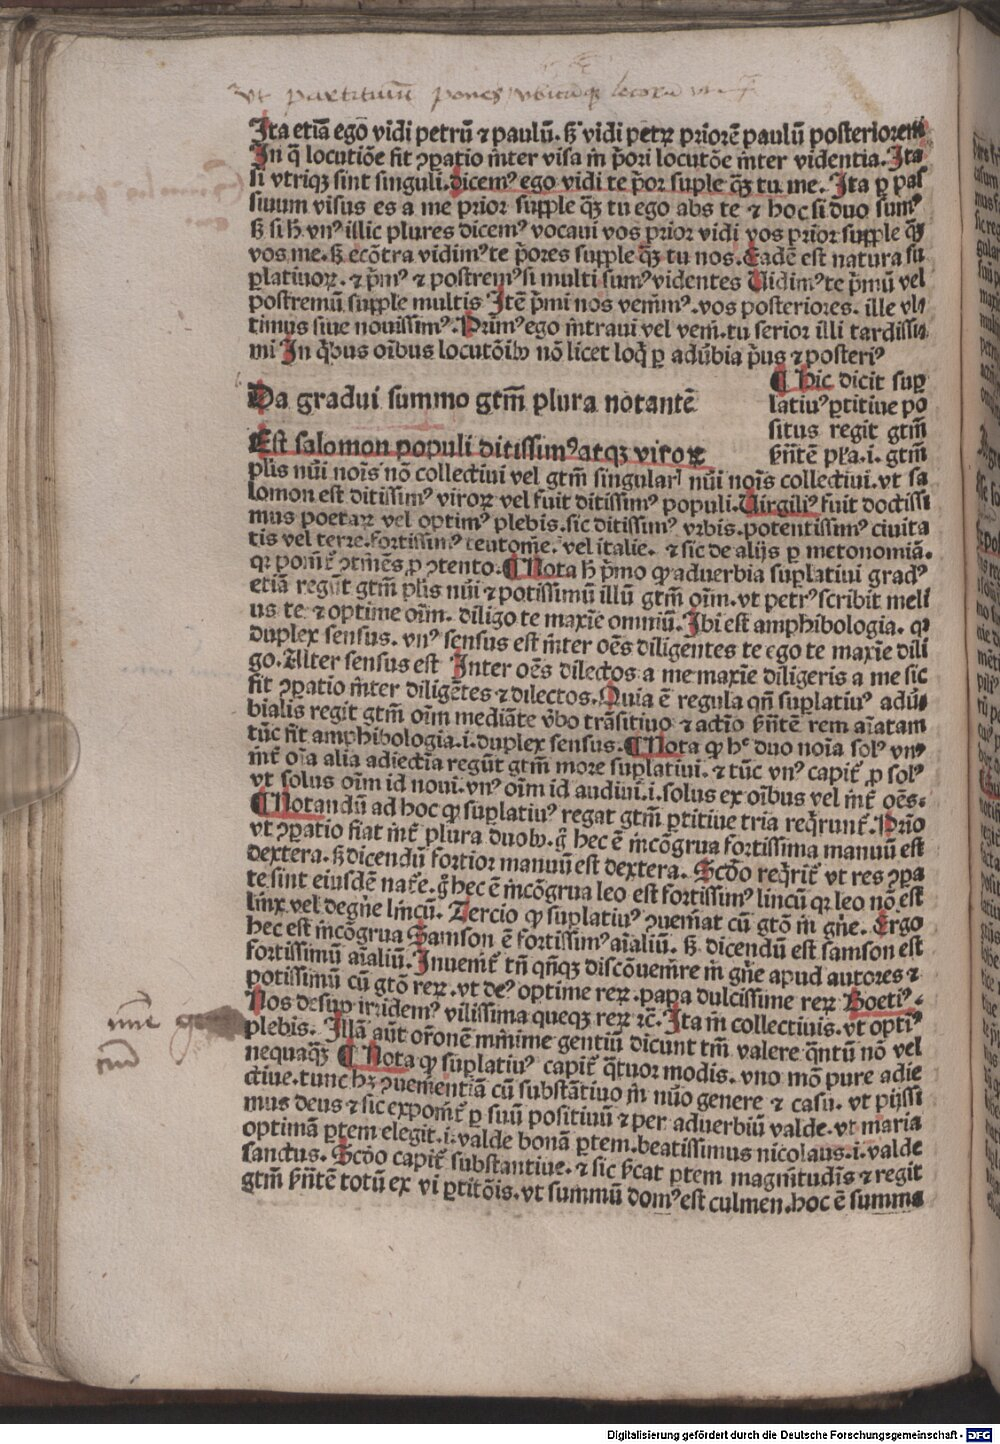 vt partitiuũ pones vbicũqꝫ
Ita etiã ego vidi petrũ ⁊ paulũ. sꝫ vidi petrꝝ priorẽ paulũ posteriorem
In q̃ locutiõe fit ꝯpatio inter visa in p̃ori locutõe inter videntia. Ita
si vtriqꝫ sint singuli. dicemꝰ ego vidi te p̃or suple q̃ꝫ tu me. Ita ꝑ pas
siuum visus es a me prior supple q̃ꝫ tu ego abs te ⁊ hoc si duo sumꝰ
sꝫ si h̃ vnꝰ illic plures dicemꝰ vocaui vos prior vidi vos prior supple q̃ꝫ
vos me. sꝫ ecõtra vidimꝰ te p̃ores supple q̃ꝫ tu nos. Eadẽ est natura su
ꝑlatiuoꝝ. ⁊ p̃mꝰ ⁊ postremꝰ si multi sumꝰ videntes Uidimꝰ te p̃mũ vel
postremũ supple multis Itẽ p̃mi nos venimꝰ. vos posteriores. ille vl
timus siue nouissimꝰ. Primꝰ ego intraui vel veni. tu serior illi tardissi
mi In q̃bus oĩbus locutõibꝰ nõ licet loq̃ ꝑ aduẽbia p̃us ⁊ posteriꝰ
¶ Hic dicit suꝑ
Da gradui summo gtm̃ plura notantẽ
latiuꝰ ꝑtitiue po
situs regit gtm̃
Est salomon populi ditissimꝰ atqꝫ viroꝝ
p̃ñtẽ pl̃a. i. gtm̃
pl̃is nũi noĩs nõ collectiui vel gtm̃ singularꝭ nũi noĩs collectiui. vt sa
lomon est ditissimꝰ viroꝝ vel fuit ditissimꝰ populi. Uirgiliꝰ fuit doctissi
mus poetaꝝ vel optimꝰ plebis. sic ditissimꝰ vrbis. potentissimꝰ ciuita
tis vel terre. fortissimꝰ teutonie. vel italie. ⁊ sic de alijs ꝑ metonomiã.
qꝛ ponit̃ ꝯtinẽs ꝓ ꝯtento. ¶ Nota h̃ p̃mo ꝙ aduerbia suꝑlatiui gradꝰ
etiã regũt gtm̃ pl̃is nũi ⁊ potissimũ illũ gtm̃ oĩm. vt petrꝰ scribit meli
us te ⁊ optime oĩm. diligo te maxĩe omniũ. Ibi est amphibologia. qꝛ
duplex sensus. vnꝰ sensus est inter oẽs diligentes te ego te maxĩe dili
go. Alter sensus est Inter oẽs dilectos a me maxĩe diligeris a me sic
fit ꝯpatio inter diligẽtes ⁊ dilectos. Quia ẽ regula qñ suꝑlatiuꝰ adũ
bialis regit gtm̃ oĩm mediãte v̾bo trãsitiuo ⁊ actio p̃ñtẽ rem aĩatam
tũc fit amphibologia. i. duplex sensus. ¶ Nota ꝙ hᵉ duo noĩa solꝰ vnꝰ
int̃ oĩa alia adiectĩa regũt gtm̃ more suꝑlatiui. ⁊ tũc vnꝰ capit̃ ꝓ solꝰ
vt solus oĩm id noui. vnꝰ oĩm id audiui. i. solus ex oĩbus vel int̃ oẽs.
¶ Notandũ ad hoc ꝙ suꝑlatiuꝰ regat gtm̃ ꝑtitiue tria req̃runt̃. Prio
vt ꝯpatio fiat int̃ plura duobꝰ. g̃ hec ẽ incõgrua fortissima manuũ est
dextera. sꝫ dicendũ fortior manuũ est dextera. Scđo req̃rit̃ vt res ꝯpa
te sint eiusdẽ nat̃e. g̃ hec ẽ incõgrua leo est fortissimꝰ lincũ qꝛ leo nõ est
linx. vel degñe lincũ. Tercio ꝙ suꝑlatiuꝰ ꝯueniat cũ gtõ in gñe. Ergo
hec est incõgrua Samson ẽ fortissimꝰ aĩaliũ. sꝫ dicendũ est samson est
fortissimũ aĩaliũ. Inuenit̃ tñ qñqꝫ discõuenire in gñe apud autores ⁊
potissimũ cũ gtõ reꝝ. vt deꝰ optime reꝝ. papa dulcissime reꝝ Boetiꝰ.
Nos desuꝑ irridemꝰ vilissima queqꝫ reꝝ ⁊c̃. Ita in collectiuis. vt optiꝰ
plebis. Illã aũt or̃onẽ minime gentiũ dicunt tm̃ valere q̃ntũ nõ vel
nequaq̃ꝫ ¶ Nota ꝙ suꝑlatiuꝰ capit̃ q̃tuor modis. vno mõ pure adie
ctiue. tunc hꝫ ꝯuenientiã cũ substãtiuo in nũo genere ⁊ casu. vt pijssi
mus deus ⁊ sic exponit̃ ꝑ suũ positiuũ ⁊ per aduerbiũ valde. vt maria
optimã ꝑtem elegit. i. valde bonã ꝑtem. beatissimus nicolaus. i. valde
sanctus. Scđo capit̃ substantiue. ⁊ sic s̃cat ꝑtem magnitudĩs ⁊ regit
gtm̃ p̃ñtẽ totũ ex vi ꝑtitõis. vt summũ domꝰ est culmen. hoc ẽ summa
Digitalisierung gefördert durch die Deutsche Forschungsgemeinschaft - DFG